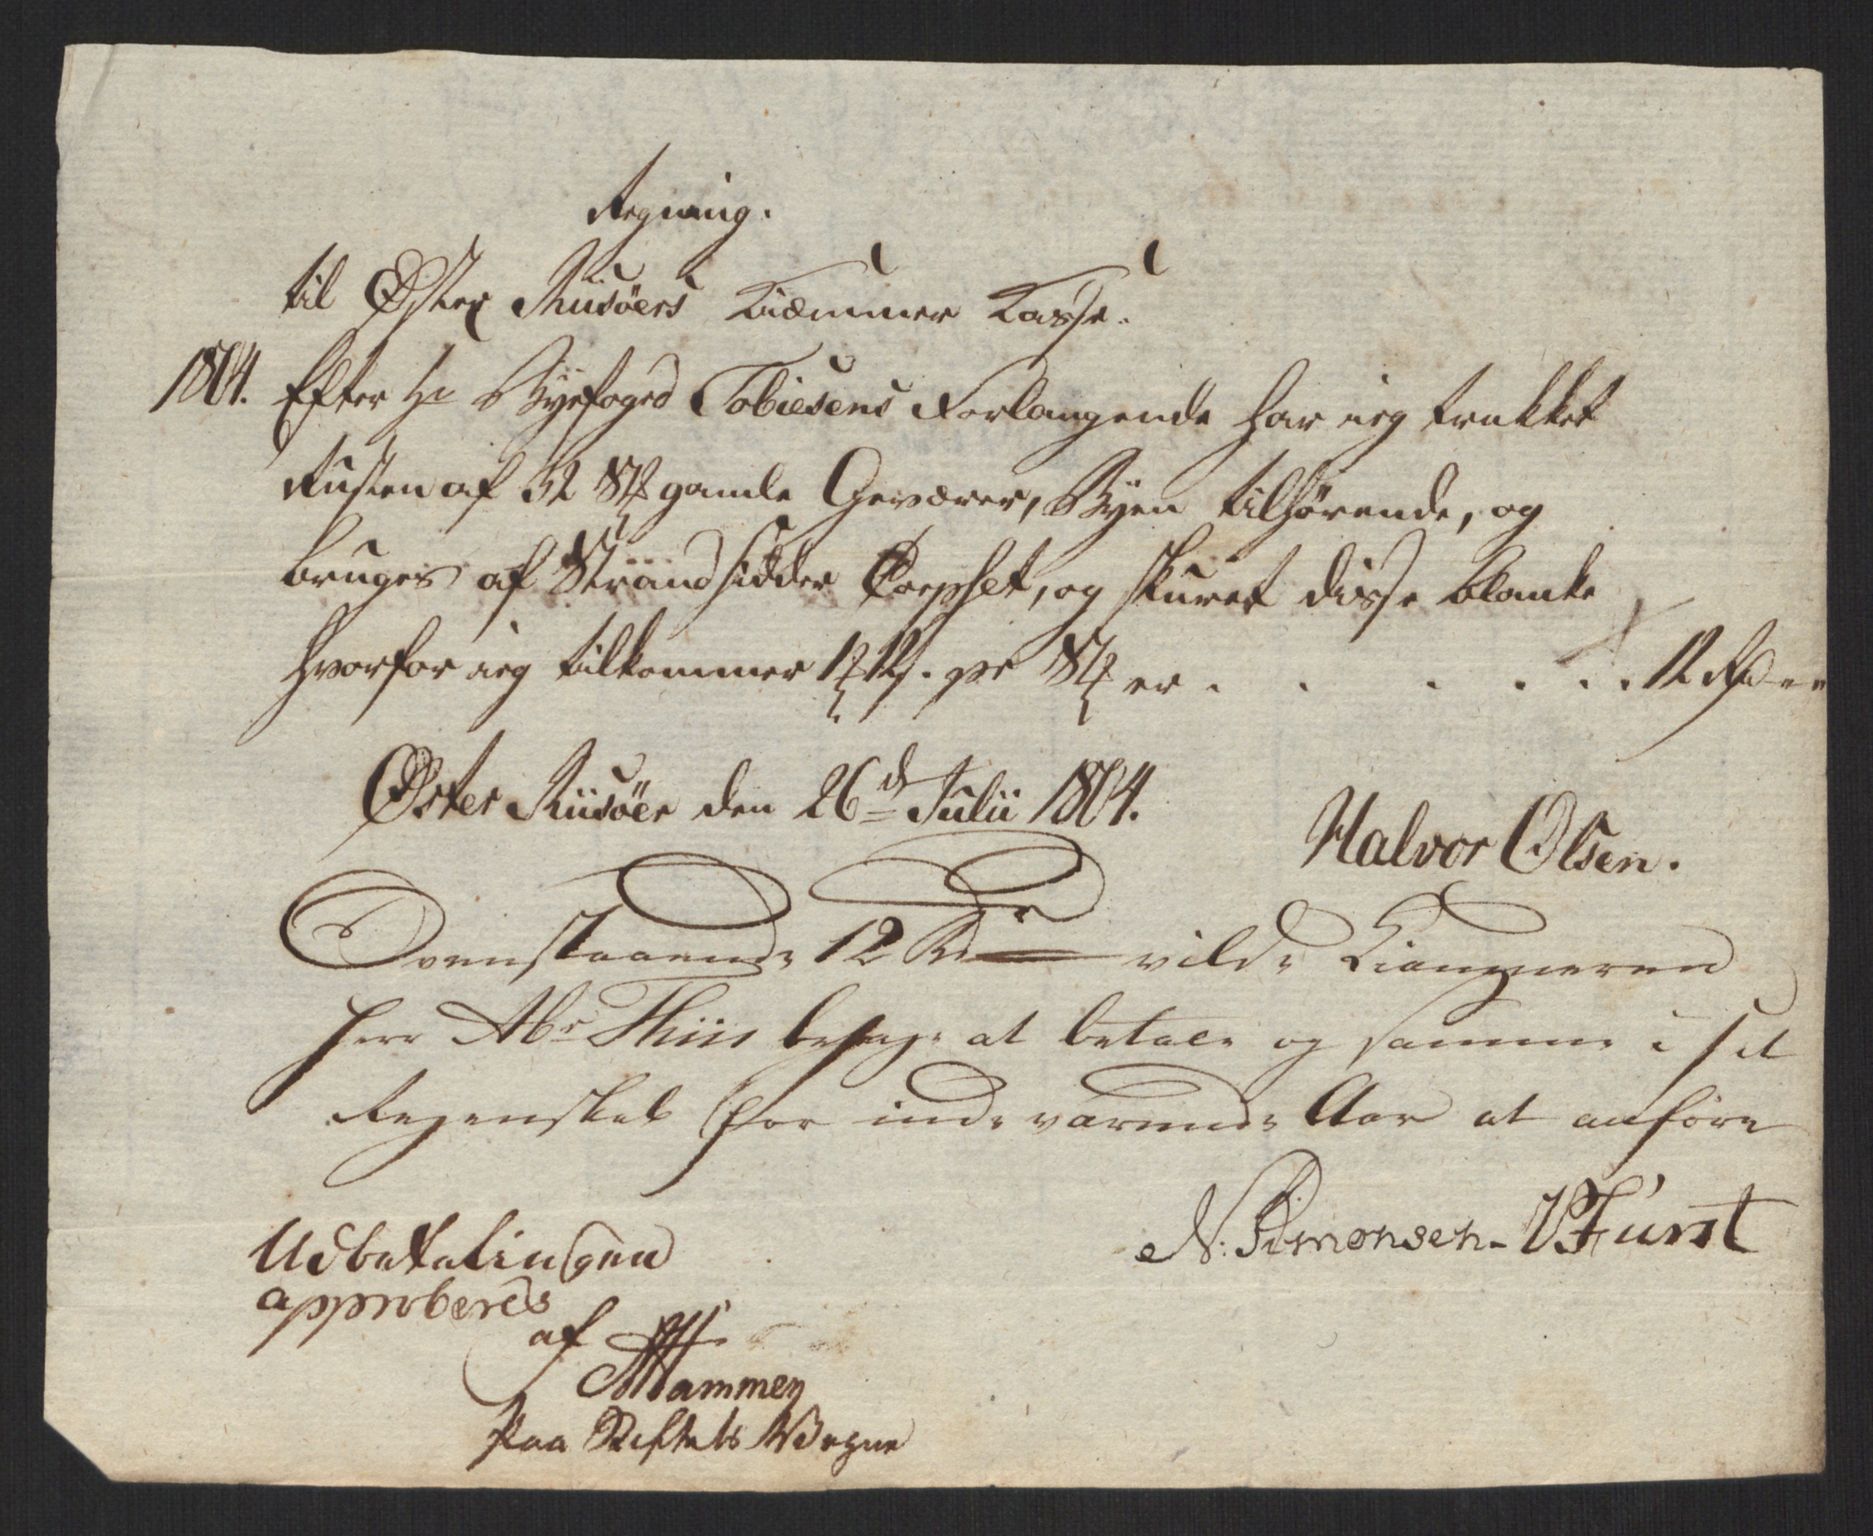 Regning.
til Øster Riisöers Kiæmner Casse.
1804. Efter Hr Byefoged Tobiesens Forlangende har ieg trukket
Rusten af 32 Stk gamle Geværer, Byen tilhørende, og
bruges af Strandsidder Corpset, og skuret disse blanke
hvorfor ieg tilkommer pr Stk er . . . . . . 12 Rd "
Øster Riisöer den 26d Julii 1804.
Halvor Olsen.
Ovenstaaende 12 Rdr vilde Kiæmneren
Herr Abr Thiis behage at betale og samme i sit
Regenskab for inde værende Aar at anføre
N. Simonsen. Fürst
Udbetalingen
approberes
af
Hammer
paa Stiftets Vegne